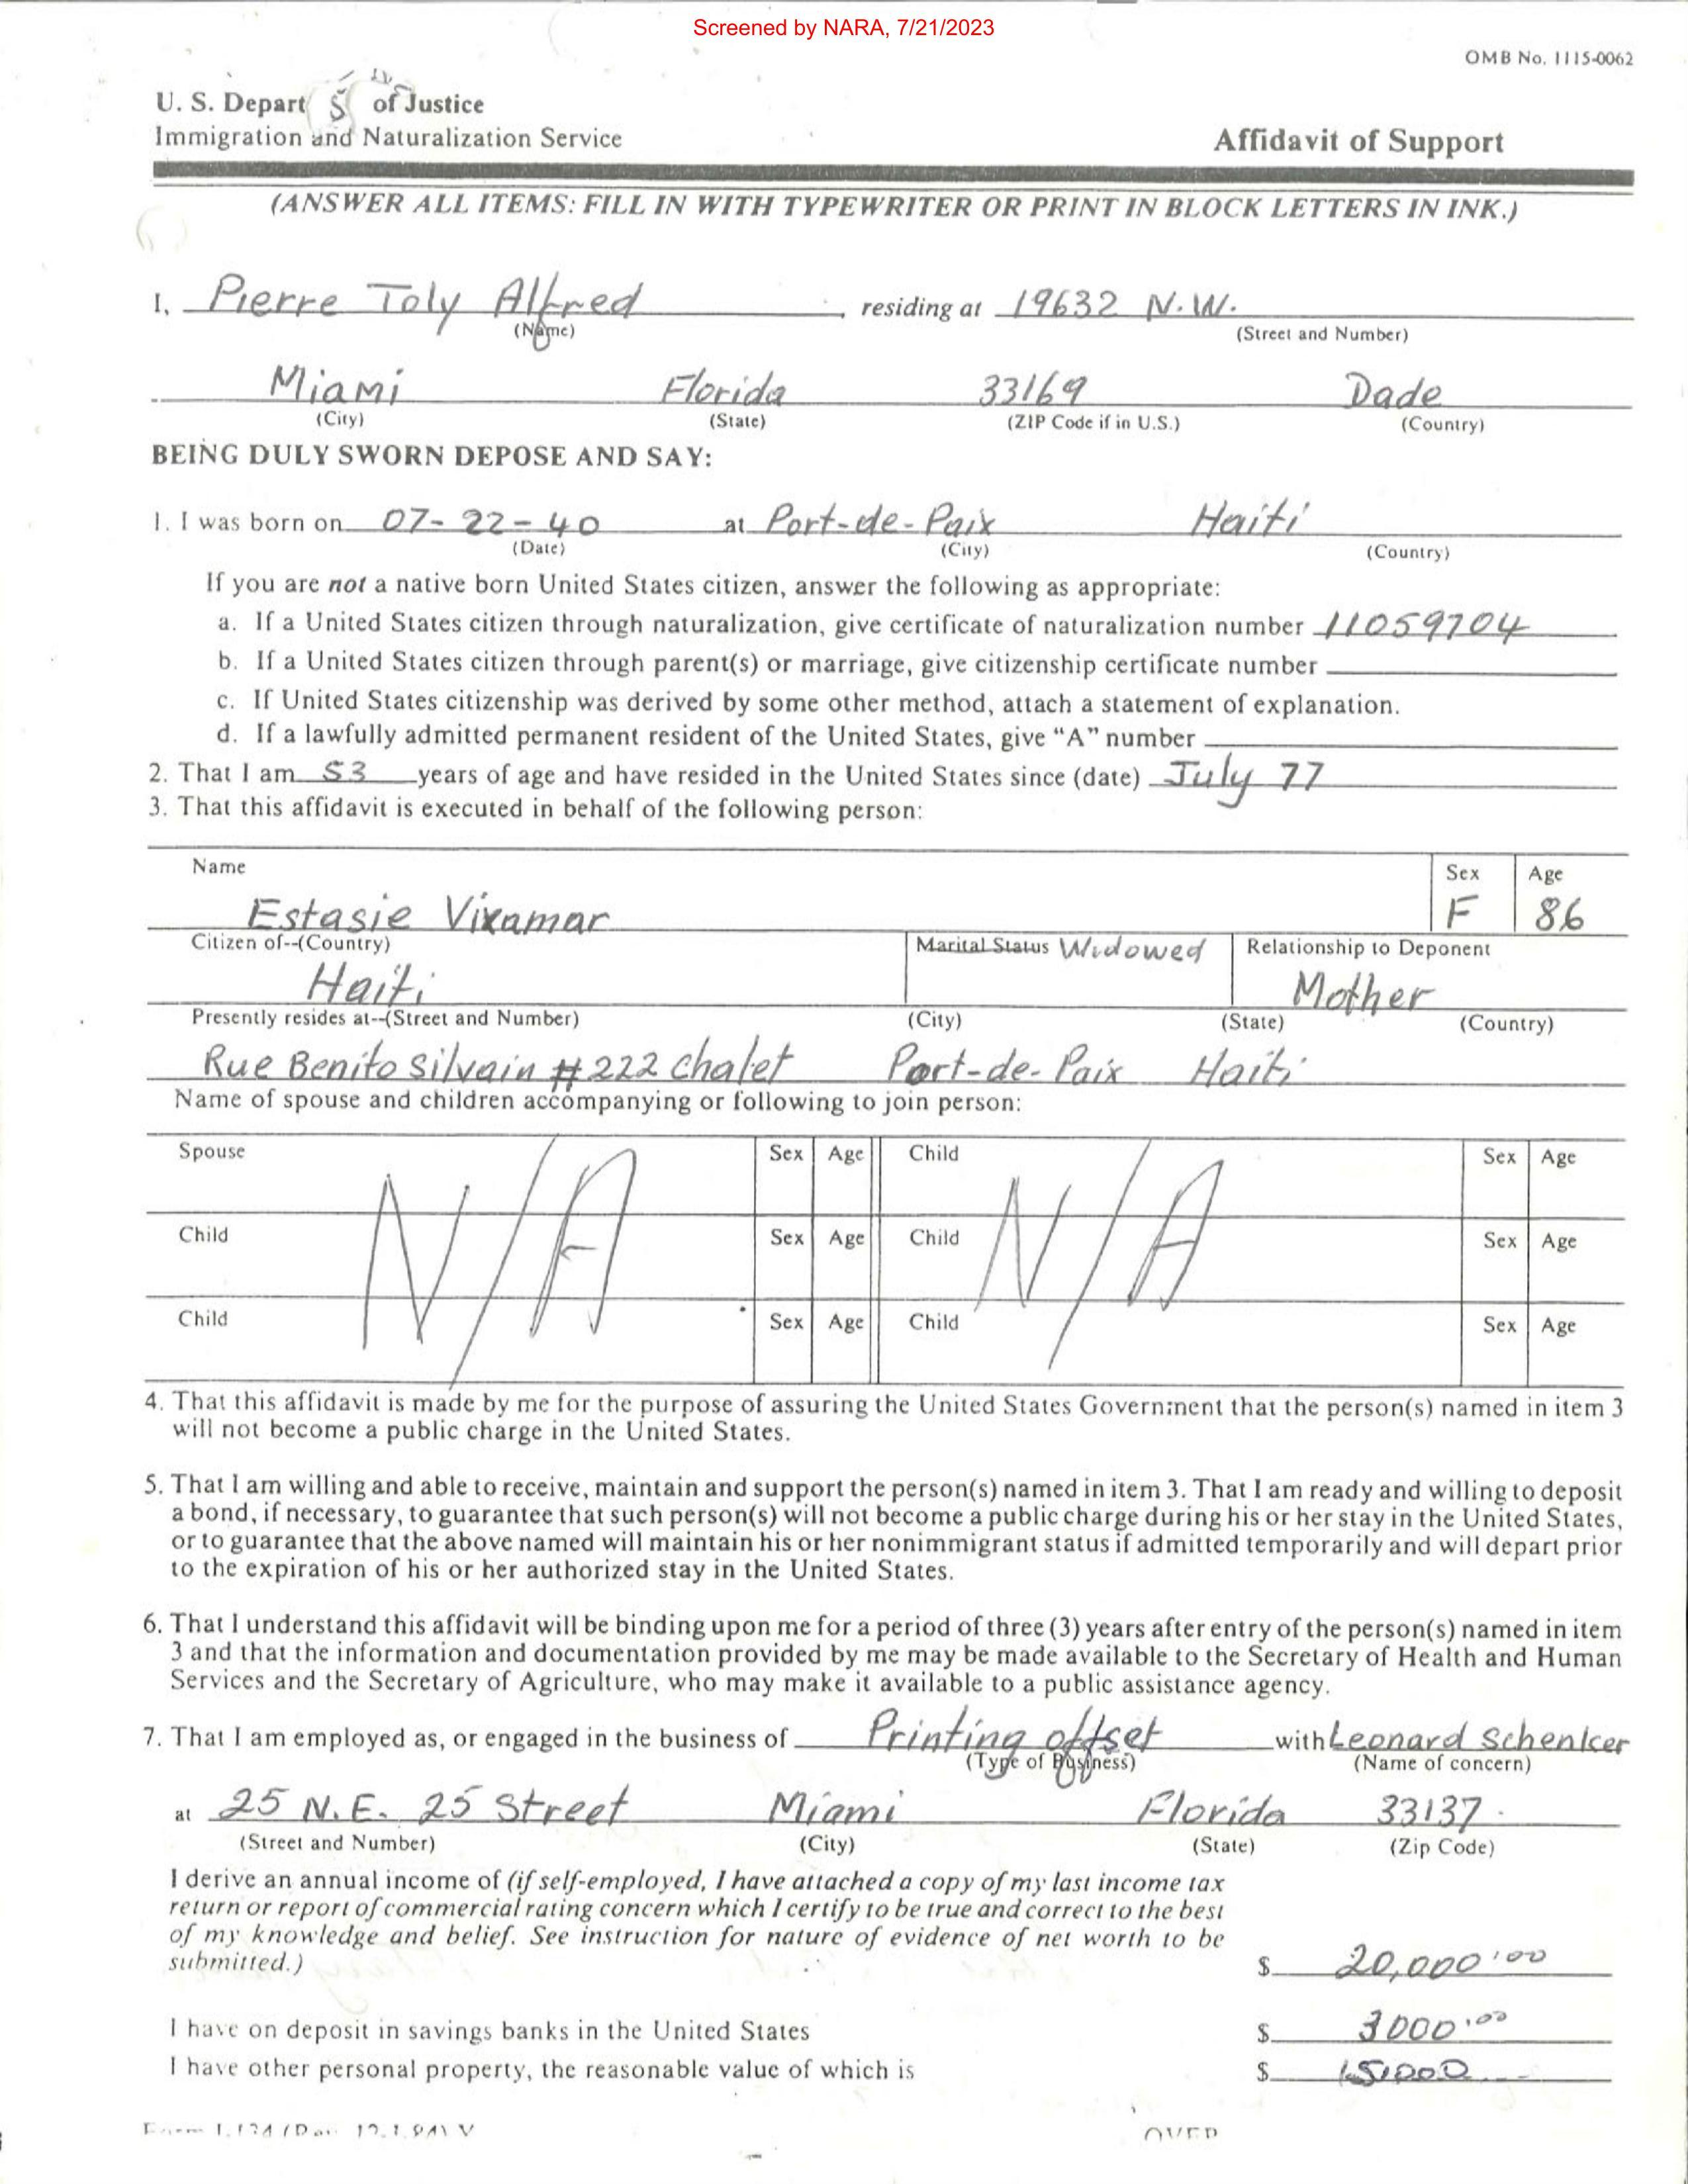 Screened by NARA, 7/21/2023
OMB No. 1115-0062
U. S. Depart of Justice
Immigration and Naturalization Service
Affidavit of Support
(ANSWER ALL ITEMS: FILL IN WITH TYPEWRITER OR PRINT IN BLOCK LETTERS IN INK.)
I, Pierre Toly Alfred, residing at 19632 N.W.
(Name) (Street and Number)
Miami Florida 33169 Dade
(City) (State) (ZIP Code if in U.S.) (Country)
BEING DULY SWORN DEPOSE AND SAY:
1. I was born on 07-22-40 at Port-de-Paix Haiti
(Date) (City) (Country)
If you are not a native born United States citizen, answer the following as appropriate:
a. If a United States citizen through naturalization, give certificate of naturalization number 11059704
b. If a United States citizen through parent(s) or marriage, give citizenship certificate number
c. If United States citizenship was derived by some other method, attach a statement of explanation.
d. If a lawfully admitted permanent resident of the United States, give "A" number
2. That I am 53 years of age and have resided in the United States since (date) July 77
3. That this affidavit is executed in behalf of the following person:
Name Sex Age
Estasie Vixamar F 86
Citizen of--(Country) Marital Status Widowed Relationship to Deponent
Haiti Mother
Presently resides at--(Street and Number) (City) (State) (Country)
Rue Benito Silvain #222 chalet Port-de-Paix Haiti
Name of spouse and children accompanying or following to join person:
Spouse Sex Age Child Sex Age
N/A N/A
Child Sex Age Child Sex Age
Child Sex Age Child Sex Age
4. That this affidavit is made by me for the purpose of assuring the United States Government that the person(s) named in item 3
will not become a public charge in the United States.
5. That I am willing and able to receive, maintain and support the person(s) named in item 3. That I am ready and willing to deposit
a bond, if necessary, to guarantee that such person(s) will not become a public charge during his or her stay in the United States,
or to guarantee that the above named will maintain his or her nonimmigrant status if admitted temporarily and will depart prior
to the expiration of his or her authorized stay in the United States.
6. That I understand this affidavit will be binding upon me for a period of three (3) years after entry of the person(s) named in item
3 and that the information and documentation provided by me may be made available to the Secretary of Health and Human
Services and the Secretary of Agriculture, who may make it available to a public assistance agency.
7. That I am employed as, or engaged in the business of Printing offset with Leonard Schenker
(Type of Business) (Name of concern)
at 25 N.E. 25 Street Miami Florida 33137
(Street and Number) (City) (State) (Zip Code)
I derive an annual income of (if self-employed, I have attached a copy of my last income tax
return or report of commercial rating concern which I certify to be true and correct to the best
of my knowledge and belief. See instruction for nature of evidence of net worth to be
submitted.) $ 20,000.00
I have on deposit in savings banks in the United States $ 3000.00
I have other personal property, the reasonable value of which is $
OVER